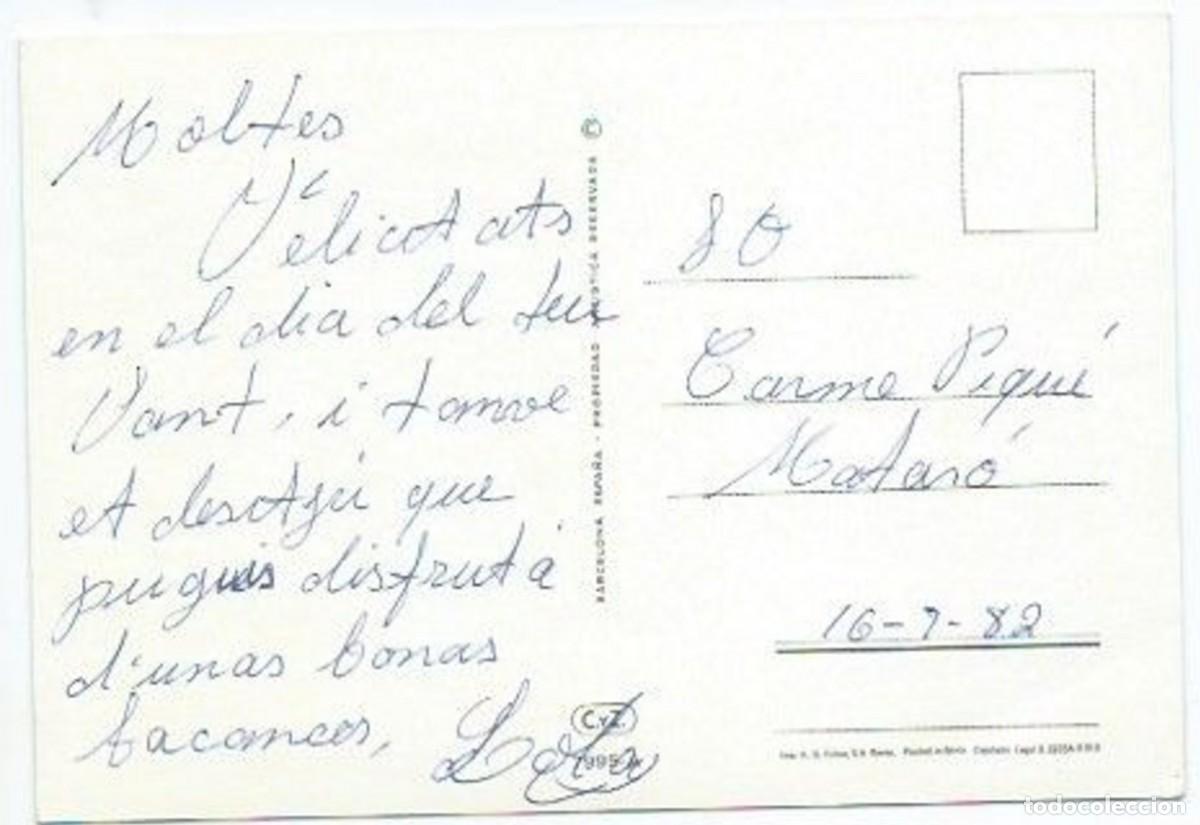 Moltes
Felicitats
en el dia del teu
Sant, i tamve
et desitju que
puguis disfrutá
d'unas bonas
bacances, Lola
BARCELONA ESPAÑA - PROPIEDAD ARTISTICA RESERVADA ©
80
Carme Piqué
Mataró
16-7-82
C.y Z.
todocoleccion